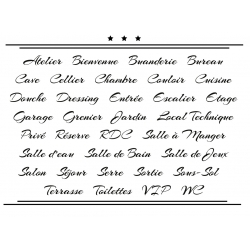 Atelier Bienvenue Buanderie Bureau
Cave Cellier Chambre Couloir Cuisine
Douche Dressing Entrée Escalier Etage
Garage Grenier Jardin Local Technique
Privé Réserve RDC Salle à Manger
Salle d'eau Salle de Bain Salle de Jeux
Salon Séjour Serre Sortie Sous-Sol
Terrasse Toilettes VIP WC